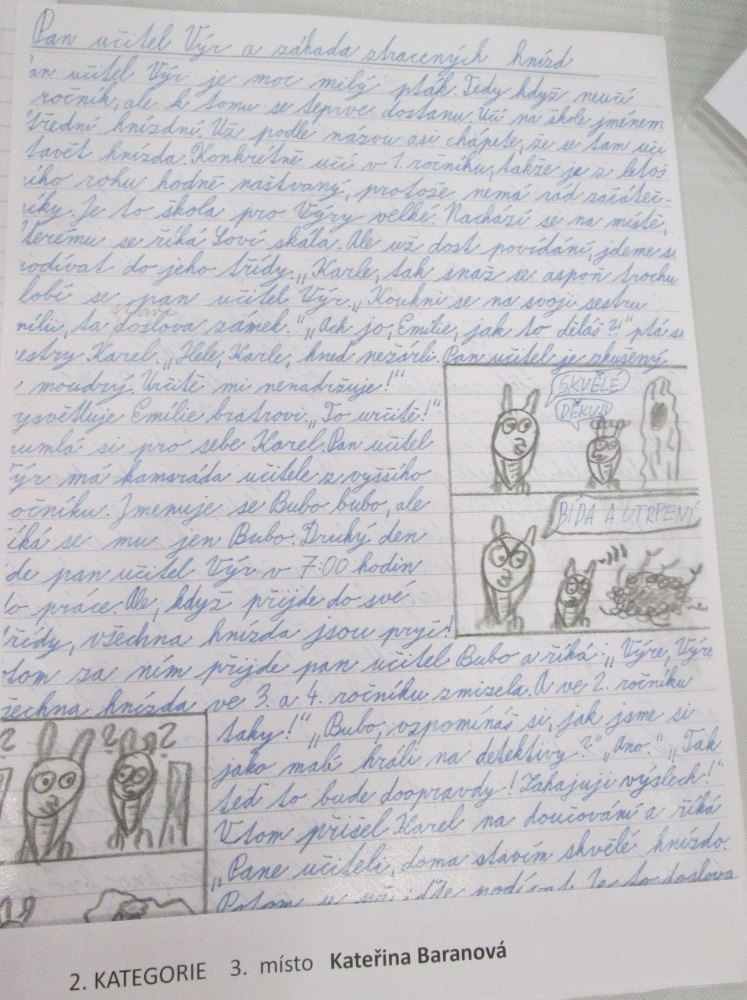 Pan učitel Výr a záhada ztracených hnízd
an učitel Výr je moc milý pták. Tedy když neučí
ročník, ale k tomu se teprve dostanu. Učí na škole jménem
třední hnízdní. Už podle názvu asi chápete, že se tam učí
tavět hnízda. Konkrétně učí v 1. ročníku, takže je z letoš
ího roku hodně naštvaný, protože nemá rád začáteč-
íky. Je to škola pro Výry velké. Nachází se na místě,
kterému se říká Soví skála. Ale už dost povídání, jdeme s
odívat do jeho třídy. „Karle, tak snaž se aspoň trochu
lobí se pan učitel Výr. „Koukni se na svoji sestru
mílii, ta doslova zámek." „Ach jo, Emílie, jak to děláš?!" ptá se
staví
estry Karel. „Hele, Karle, hned nežárli. Pan učitel je zkušený
moudrý. Určitě mi nenadržuje!"
ysvětluje Emílie bratrovi. „To určitě!"
umlá si pro sebe Karel. Pan učitel
ýr má kamaráda učitele z vyššího
očníku. Jmenuje se Bubo bubo, ale
íká se mu jen Bubo. Druhý den
de pan učitel Výr v 7:00 hodin
do práce. Ale, když přijde do své
třídy, všechna hnízda jsou pryč!
SKVĚLÉ
DĚKUJI
BÍDA A UTRPENÍ
tom za ním přijde pan učitel Bubo a říká: „Výre, Výre
šechna hnízda ve 3. a 4. ročníku zmizela. A ve 2. ročníku
taky!" „Bubo, vzpomínáš si, jak jsme si
jako malí hráli na detektivy?" „Ano." „Tak
teď to bude doopravdy! Zahajuji výslech!"
V tom přišel Karel na doučování a říká
„Pane učiteli, doma stavím skvělé hnízdo.
Potom se podívat. Je to doslova
? ? ?
2. KATEGORIE 3. místo Kateřina Baranová